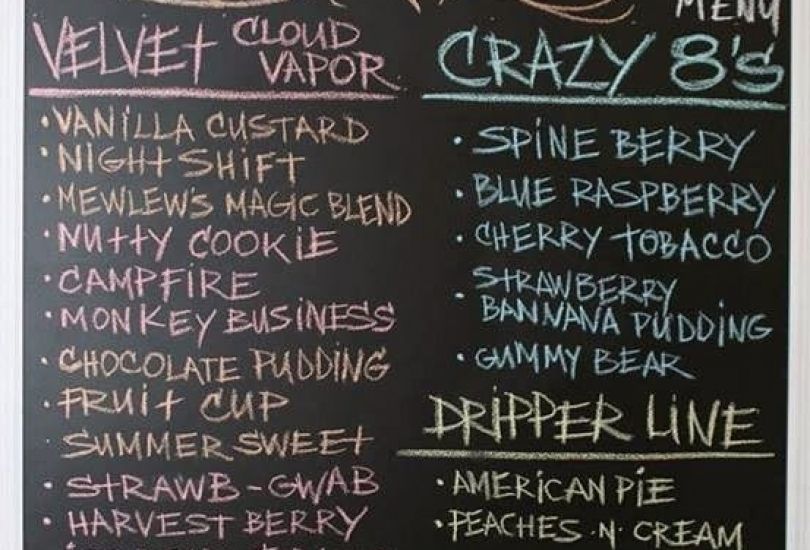 MENU
VELVET CLOUD VAPOR
• VANILLA CUSTARD
• NIGHT SHIFT
• MEWLEW'S MAGIC BLEND
• NUTTY COOKIE
• CAMPFIRE
• MONKEY BUSINESS
• CHOCOLATE PUDDING
• FRUIT CUP
• SUMMER SWEET
• STRAWB-GWAB
• HARVEST BERRY
CRAZY 8'S
• SPINE BERRY
• BLUE RASPBERRY
• CHERRY TOBACCO
• STRAWBERRY
BANNANA PUDDING
• GUMMY BEAR
DRIPPER LINE
• AMERICAN PIE
• PEACHES ·N· CREAM